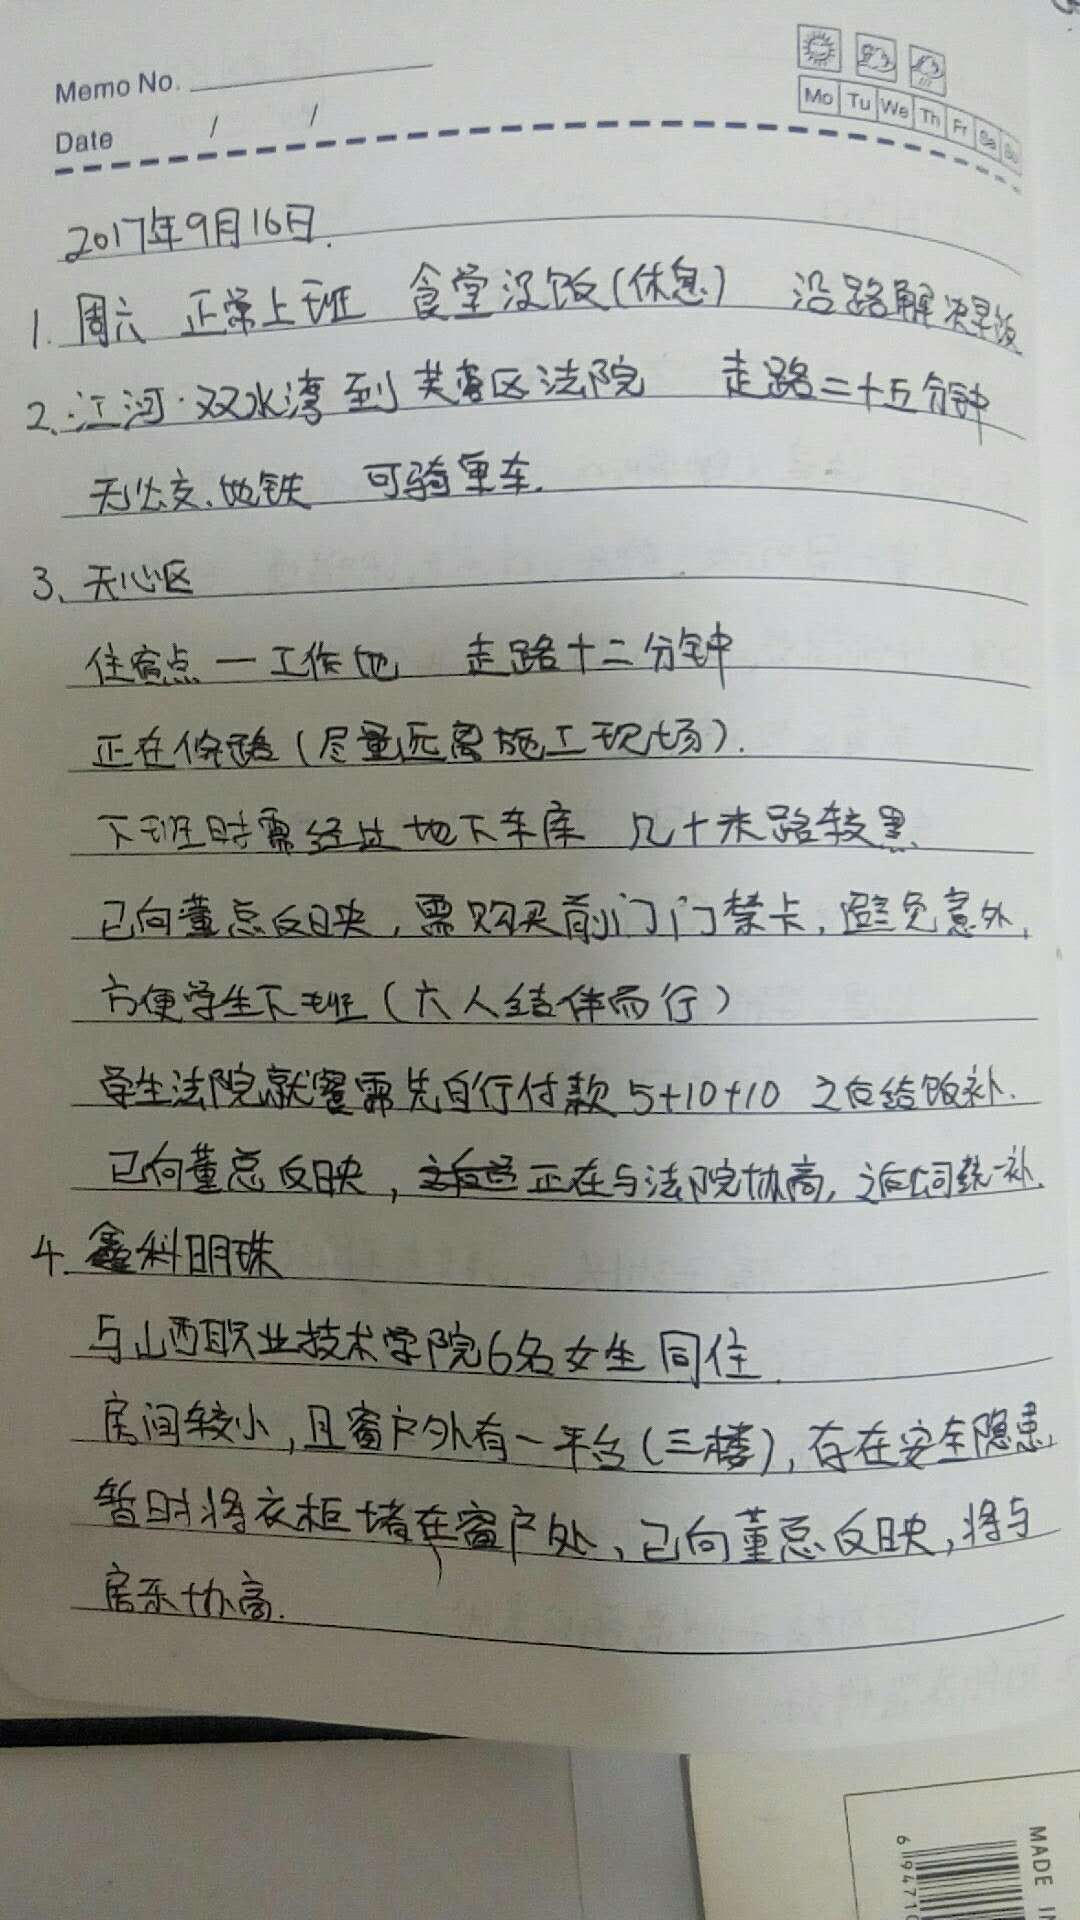 Memo No.
Mo Tu We Th Fr Sa Su
Date / /
2017年9月16日.
1. 周六 正常上班 食堂没饭(休息) 沿路解决早饭
2、江河·双水湾到芙蓉区法院 走路二十五分钟
无公交、地铁 可骑单车.
3、天心区
住宿点一工作地 走路十二分钟
正在修路(尽量远离施工现场).
下班时需经过地下车库 几十米路较黑.
已向董总反映,需购买前门门禁卡,避免意外,
方便学生下班(六人结伴而行)
学生法院就餐需先自行付款5+10+10 之后给饭补.
已向董总反映, 正在与法院协商,之后公司统一补.
4. 鑫科明珠
与山西职业技术学院6名女生同住.
房间较小,且窗户外有一平台(三楼),存在安全隐患
暂时将衣柜堵在窗户处、已向董总反映,将与
房东协商.
MADE IN
6 94710